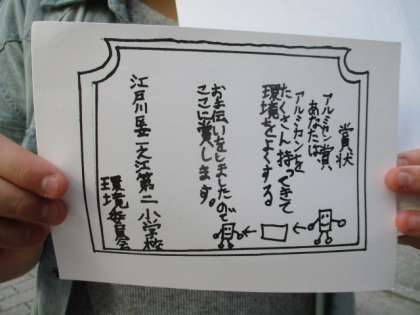 賞状
アルミカン賞
あなたは
アルミカンを
たくさん持ってきて
環境をよくする
お手伝いをしましたので
ここに賞します。
江戸川区一之江第二小学校
環境委員会